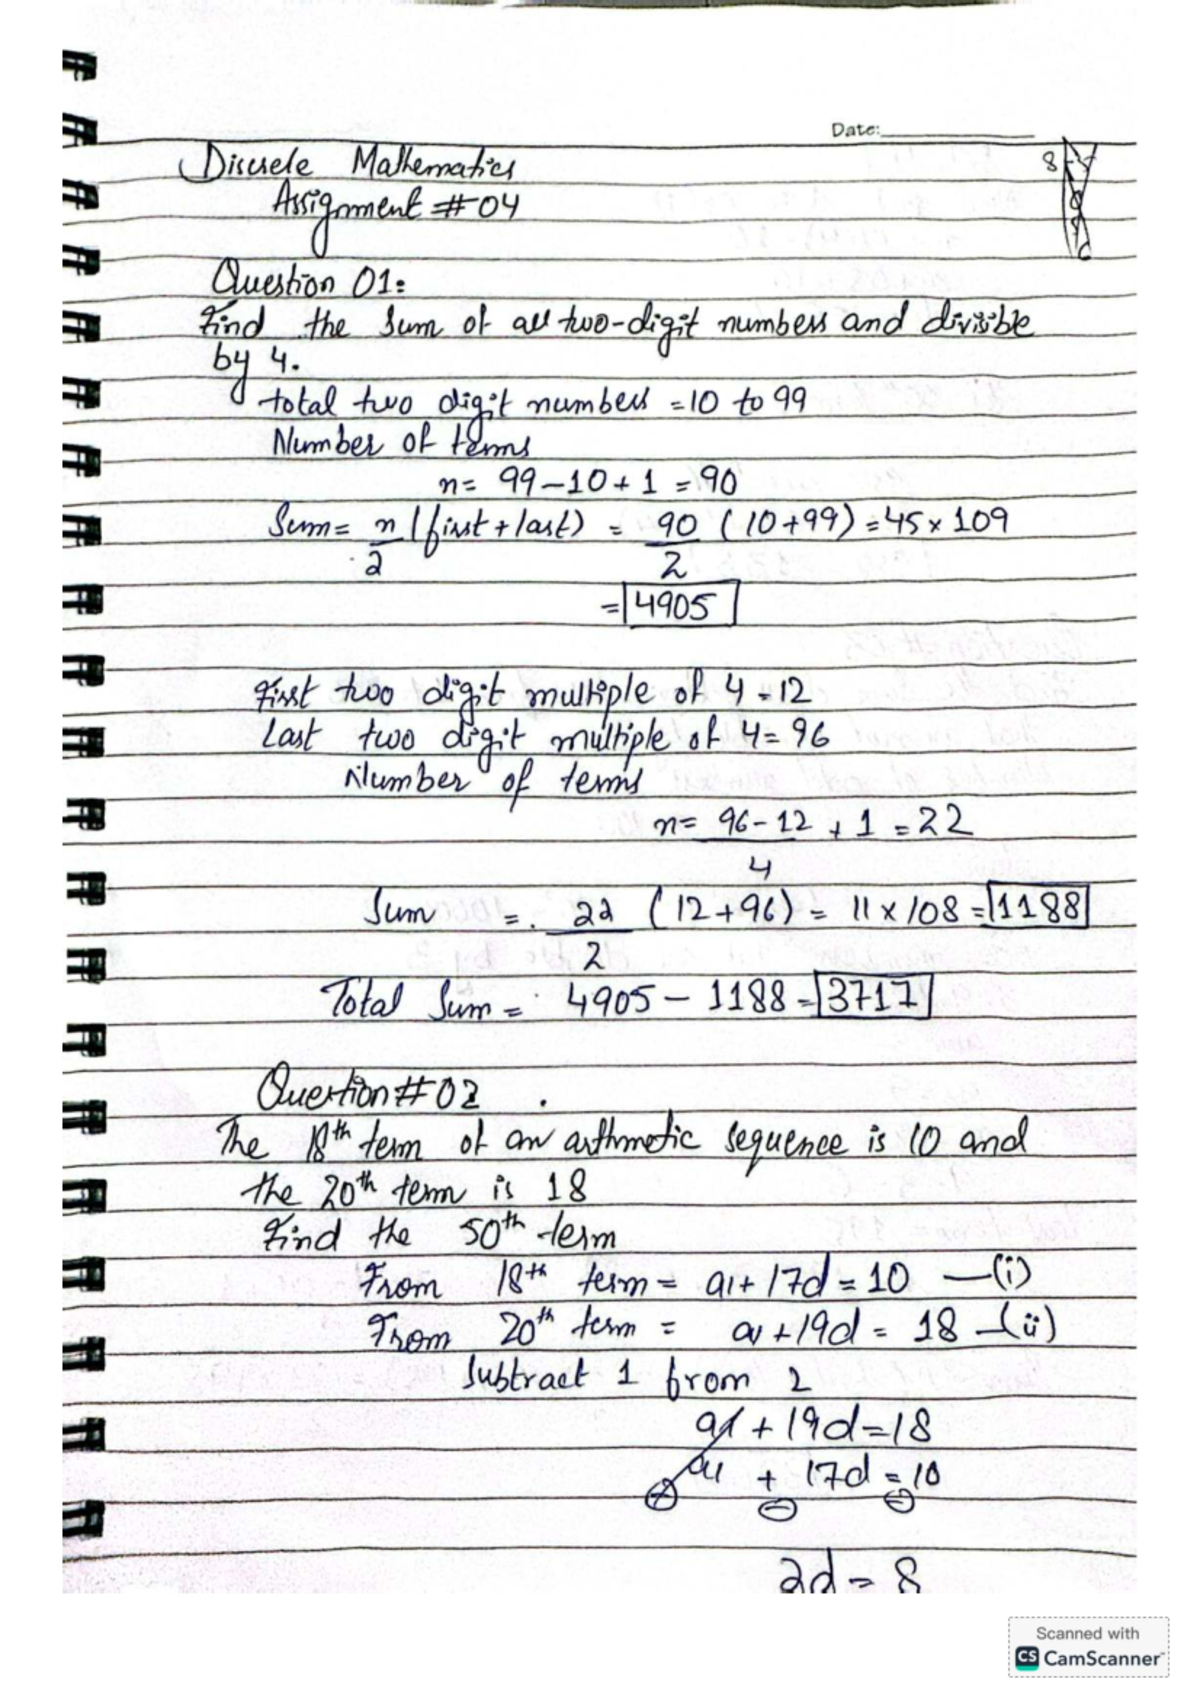 Date:
Discrete Mathematics
Assignment #04
Question 01:
Find the Sum of all two-digit numbers and divisible
by 4.
total two digit numbers = 10 to 99
Number of terms
n = 99 - 10 + 1 = 90
Sum = n/2 (first + last) = 90/2 (10+99) = 45 × 109
= 4905
First two digit multiple of 4 = 12
Last two digit multiple of 4 = 96
Number of terms
n = 96 - 12 / 4 + 1 = 22
Sum = 22/2 (12+96) = 11 × 108 = 1188
Total Sum = 4905 - 1188 = 3717
Question #02
The 18th term of an arthmetic sequence is 10 and
the 20th term is 18
Find the 50th term
From 18th term = a1 + 17d = 10 —(i)
From 20th term = a1 + 19d = 18 —(ii)
Subtract 1 from 2
a1 + 19d = 18
a1 + 17d = 10
2d = 8
Scanned with
CS CamScanner